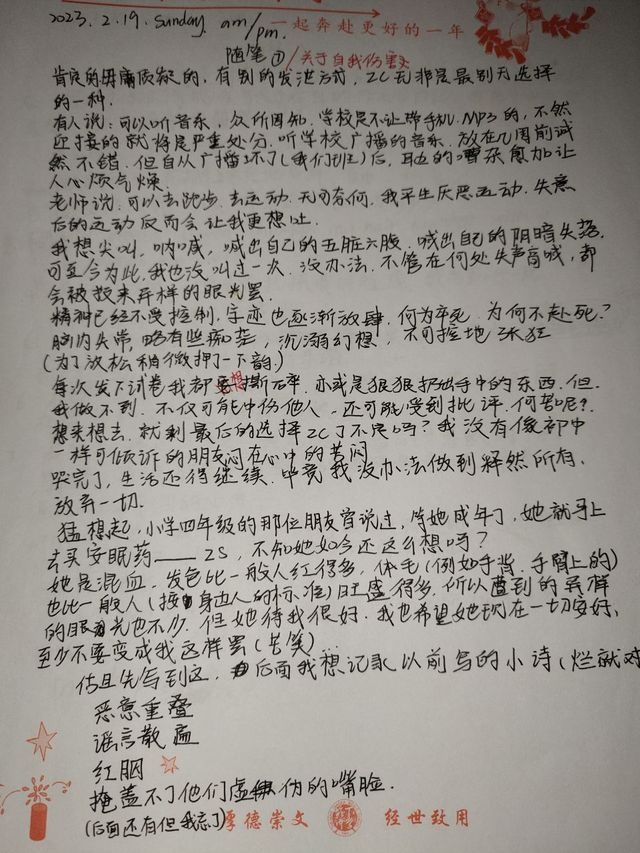 2023.2.19. sunday. am/pm.
一起奔赴更好的一年
随笔① /关于自我伤害文
肯定的毋庸质疑的,有别的发泄方式,ZC无非是最别无选择
的一种.
有人说:可以听音乐,众所周知,学校是不让带手机.MP3的,不然
迎接的就将是严重处分.听学校广播的音乐.放在几周前诚
然不错.但自从广播坏了(我们班)后,耳边的嘈杂愈加让
人心烦气燥.
老师说.可以去跑步.去运动.无可奈何.我平生厌恶运动.失意
后的运动反而会让我更想吐.
我想尖叫.呐喊,喊出自己的五脏六腑.喊出自己的阴暗失落.
可至今为止.我也没叫过一次.没办法.不管在何处失声高喊,都
会被投来异样的眼光罢.
精神已经不受控制.字迹也逐渐放肆.何为卒死.为何不赴死?
胸内失常,略有些痴茫,沉溺幻想,不可控地张狂
(为了放松稍微押了一下韵.)
每次发下试卷我都想撕碎.亦或是狠狠扔出手中的东西.但.
我做不到.不仅可能中伤他人.还可能受到批评.何苦呢?
想来想去.就剩最后的选择ZC了不是吗?我没有像初中
一样可倾诉的朋友闷在心中的苦闷
哭完了,生活还得继续.毕竟我没办法做到释然所有.
放弃一切.
猛想起,小学四年级的那位朋友曾说过,等她成年了,她就马上
去买安眠药——ZS,不知她如今还这么想吗?
她是混血.发色比一般人红得多,体毛(例如手背.手臂上的)
也比一般人(按身边人的标准)旺盛得多.所以遭到的异样
的眼光也不少.但她待我很好.我也希望她现在一切安好.
至少不要变成我这样罢(苦笑)...
估且先写到这.后面我想记录以前写的小诗(烂就对
恶意重叠
谣言散扁
红胭
掩盖不了他们虚伪的嘴脸.
(后面还有但我忘了)
厚德崇文 经世致用